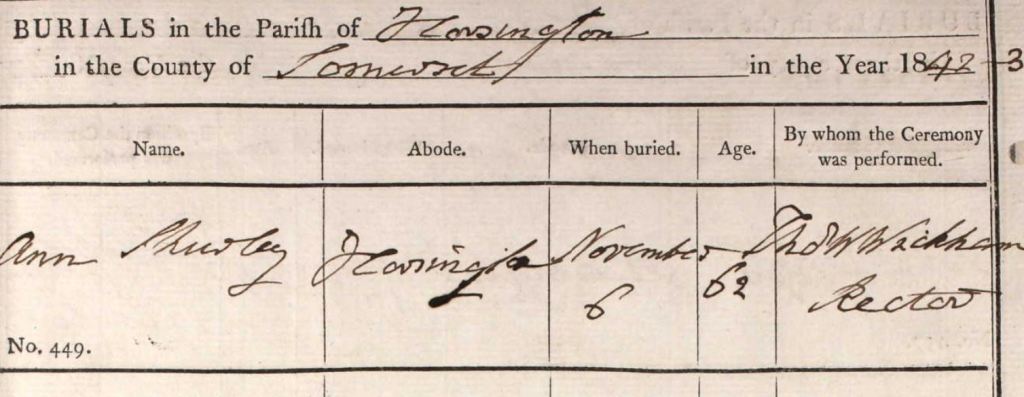 BURIALS in the Parish of Horsington
in the County of Somerset in the Year 1842-3
Name. Abode. When buried. Age. By whom the Ceremony was performed.
Ann Horsington November 62 Thos W Wickham
6 Rector
No. 449.